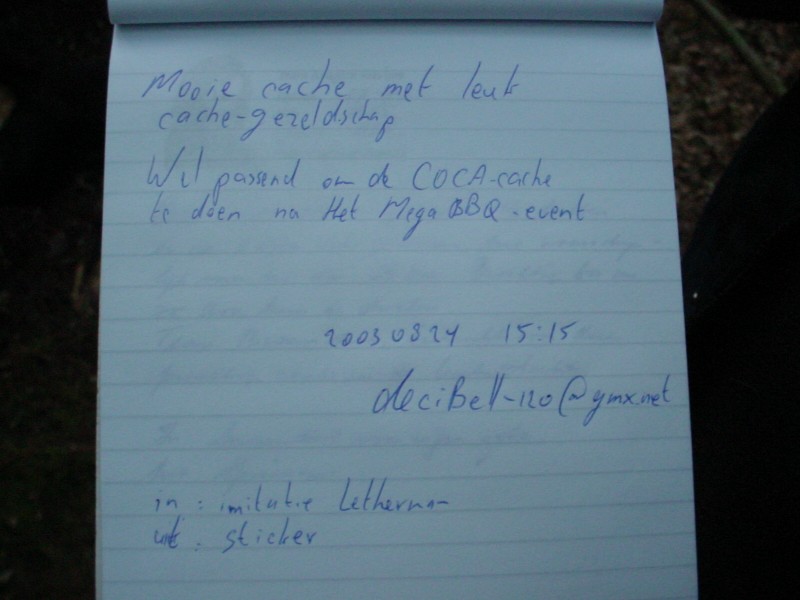 Mooie cache met leuk
cache-gezeldschap
Wel passend om de COCA-cache
te doen na Het Mega BBQ-event
20030824 15:15
deciBell-120@gmx.net
in : imitatie Letherman
uit : sticker